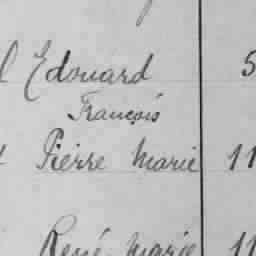 l Edouard 5
François
t Pierre Marie 11
René Marie 11